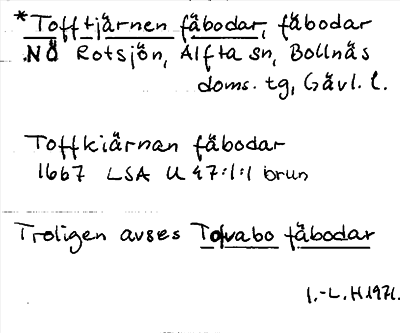 *Tofftjärnen fäbodar, fäbodar
NÖ Rotsjön, Alfta sn, Bollnäs
doms. tg, Gävl. l.
Toffkiärnan fäbodar
1667 LSA U 47:1:1 brun
Troligen avses Tolvabo fäbodar
I.-L. H 1971.